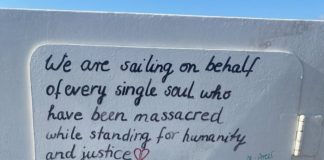 We are sailing on behalf
of every single soul who
have been massacred
while standing for humanity
and justice♡